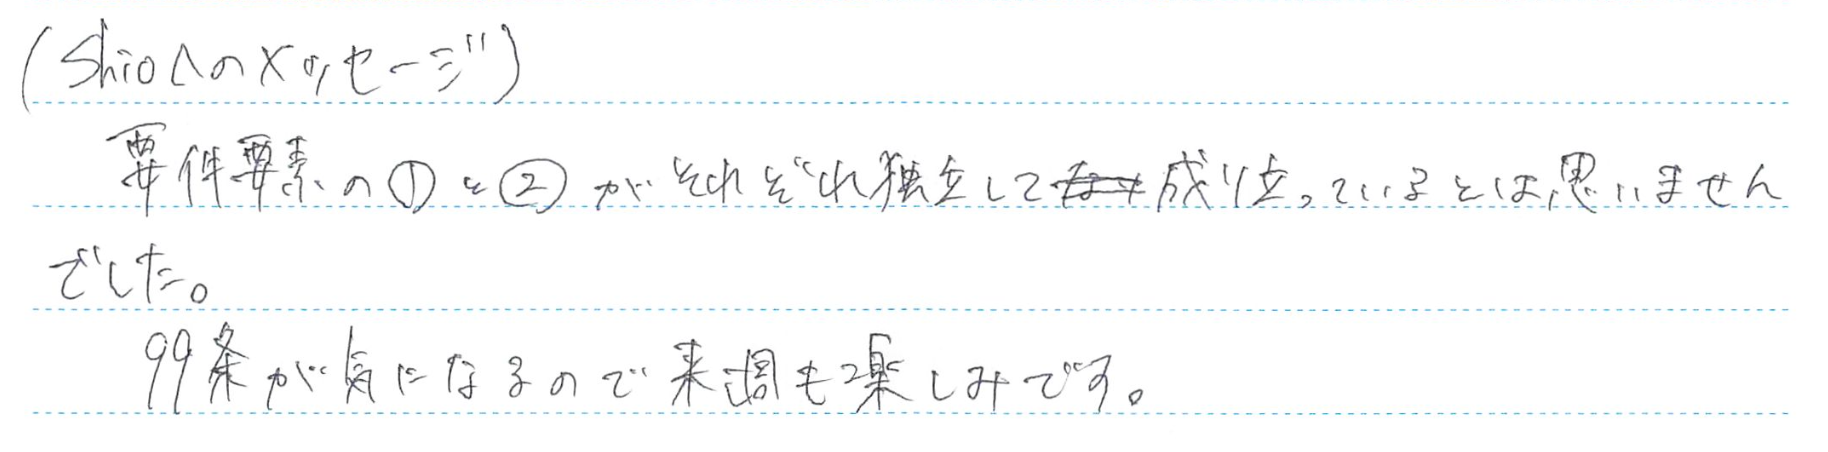 (Shioへのメッセージ)
要件要素の①と②がそれぞれ独立して成り立っているとは思いません
でした。
99条が気になるので来週も楽しみです。